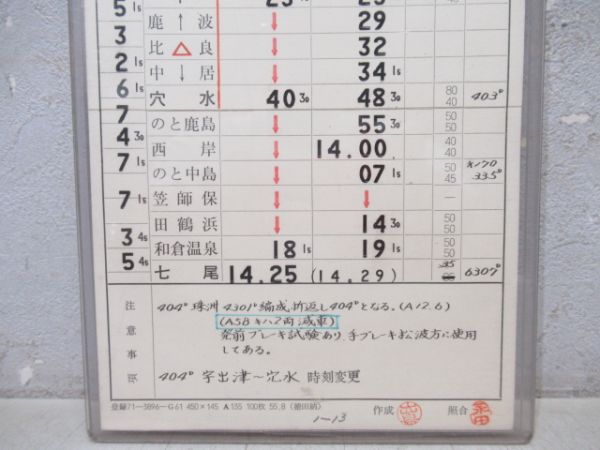 5 1s 25 25
鹿 ↑ 波 ↓ 29
3
比 △ 良 ↓ 32
2 1s
中 ↓ 居 ↓ 34 1s
6 1s
穴 水 40 30 48 30 80 40 403D
7
のと鹿島 ↓ 55 30 50 50
4 30
西 岸 ↓ 14.00 40 40
7 1s
のと中島 ↓ 07 1s 50 45 キハ70 335D
7 1s
笠師保 ↓ ↓ —
田鶴浜 ↓ 14 30 50 50
3 4s
和倉温泉 18 1s 19 1s 50 50
5 4s
七 尾 14.25 (14.29) 35 6307D
注意事項
404D 珠洲 4301D編成折返し404Dとなる。(A12.6)
(A58 キハ2両減車)
発前ブレーキ試験あり、手ブレーキ松波方に使用
してある。
404D 宇出津〜穴水 時刻変更
登録71—3896—G61 450×145 A135 100枚 55.8
作成 照合
1-13